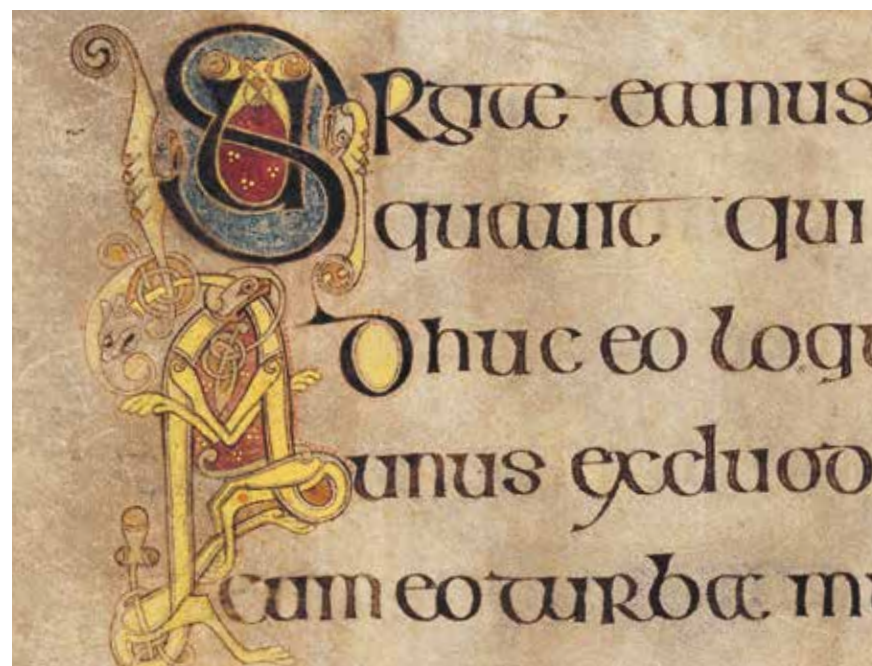 SURgite eamus
quauit qui
Adhuc eo loqu
unus exduod
cum eo turba mu